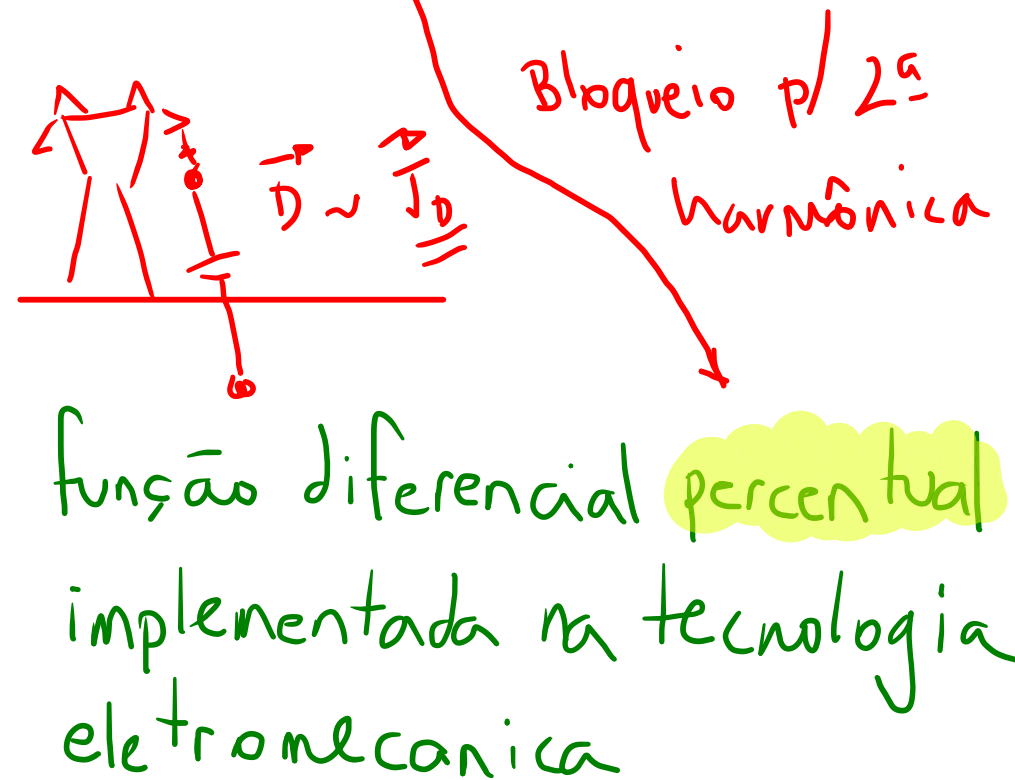 Bloqueio p/ 2ª
harmônica
D ~ J_D
função diferencial percentual
implementada na tecnologia
eletromecanica